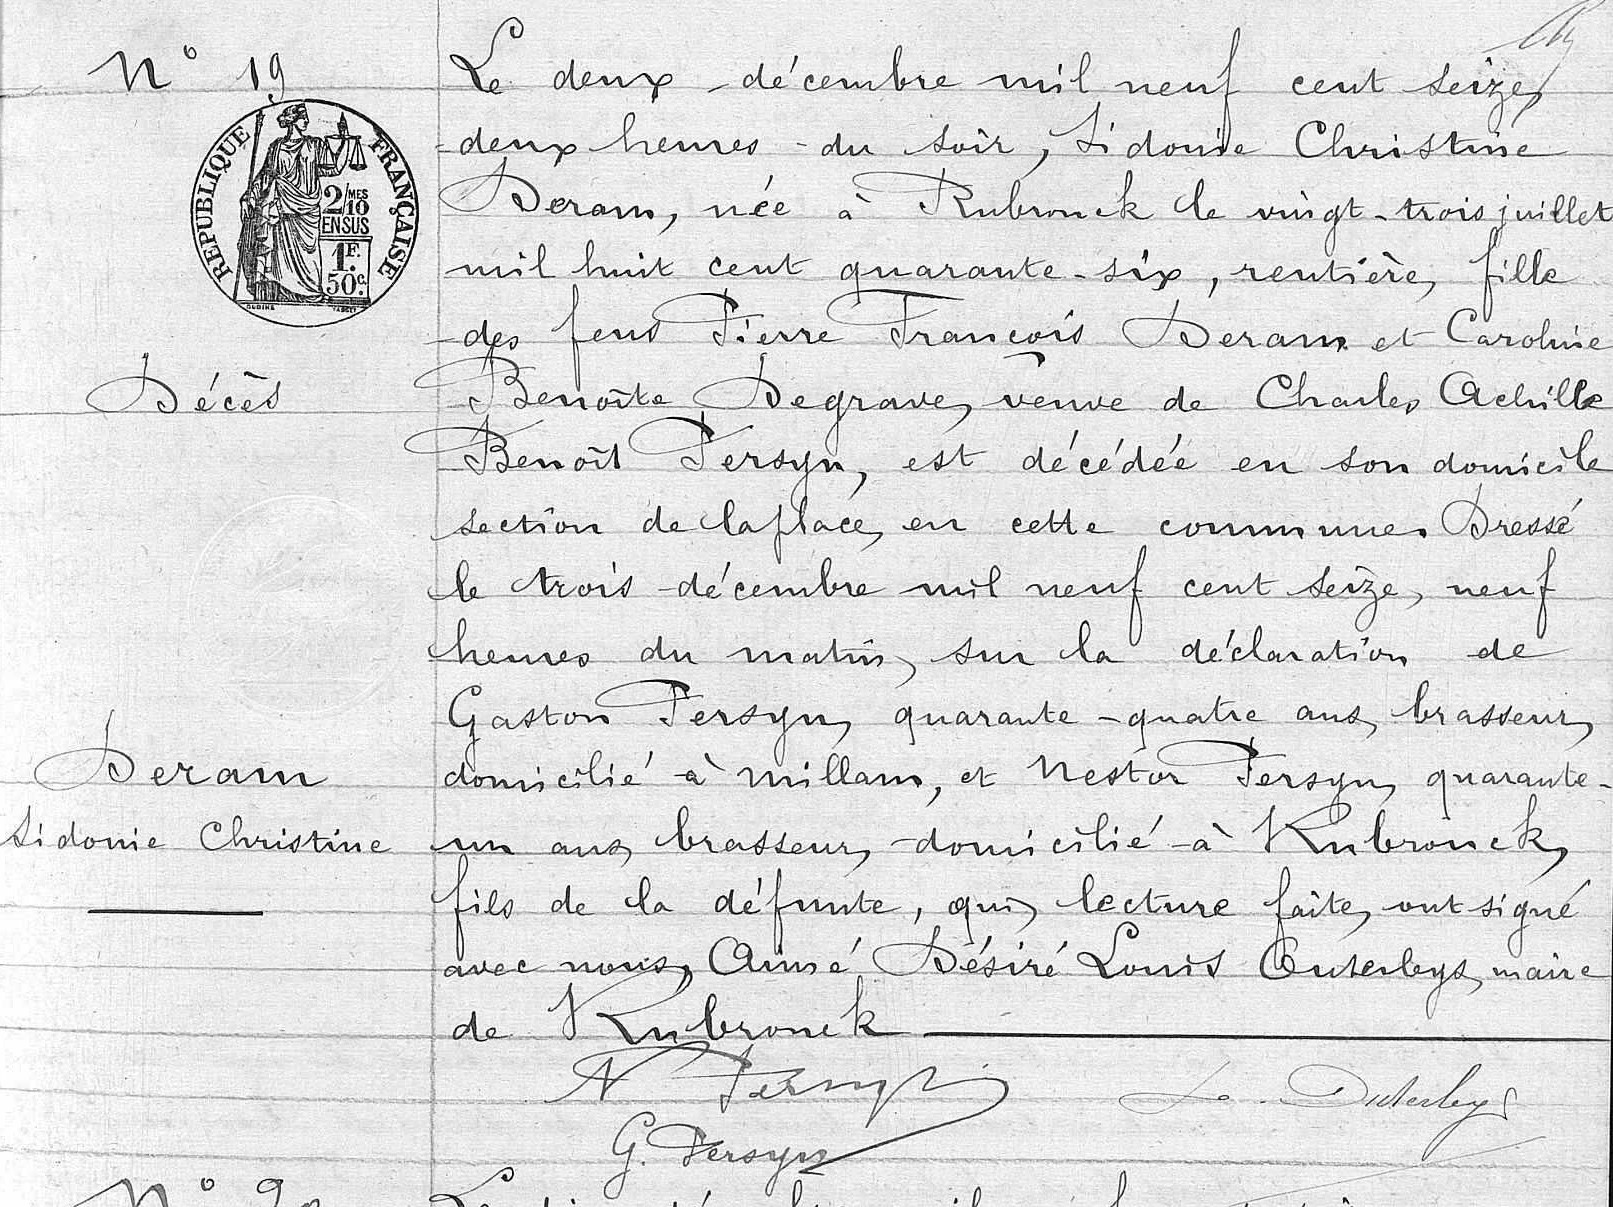 N° 19
RÉPUBLIQUE FRANÇAISE
2/10 MES
EN SUS
1F.
50c.
Décès
Deram
Sidonie Christine
Le deux décembre mil neuf cent seize,
deux heures du soir, Sidonie Christine
Deram, née à Rubrouck le vingt-trois juillet
mil huit cent quarante-six, rentière, fille
des feus Pierre François Deram et Caroline
Benoîte Degrave, veuve de Charles Achille
Benoît Persyn, est décédée en son domicile
section de la place, en cette commune. Dressé
le trois décembre mil neuf cent seize, neuf
heures du matin, sur la déclaration de
Gaston Persyn, quarante-quatre ans, brasseur,
domicilié à Millam, et Nestor Persyn, quarante-
un ans, brasseur, domicilié à Rubrouck,
fils de la défunte, qui, lecture faite, ont signé
avec nous, Aimé Désiré Louis Outerleys, maire
de Rubrouck
N Persyn
G. Persyn
N° 20